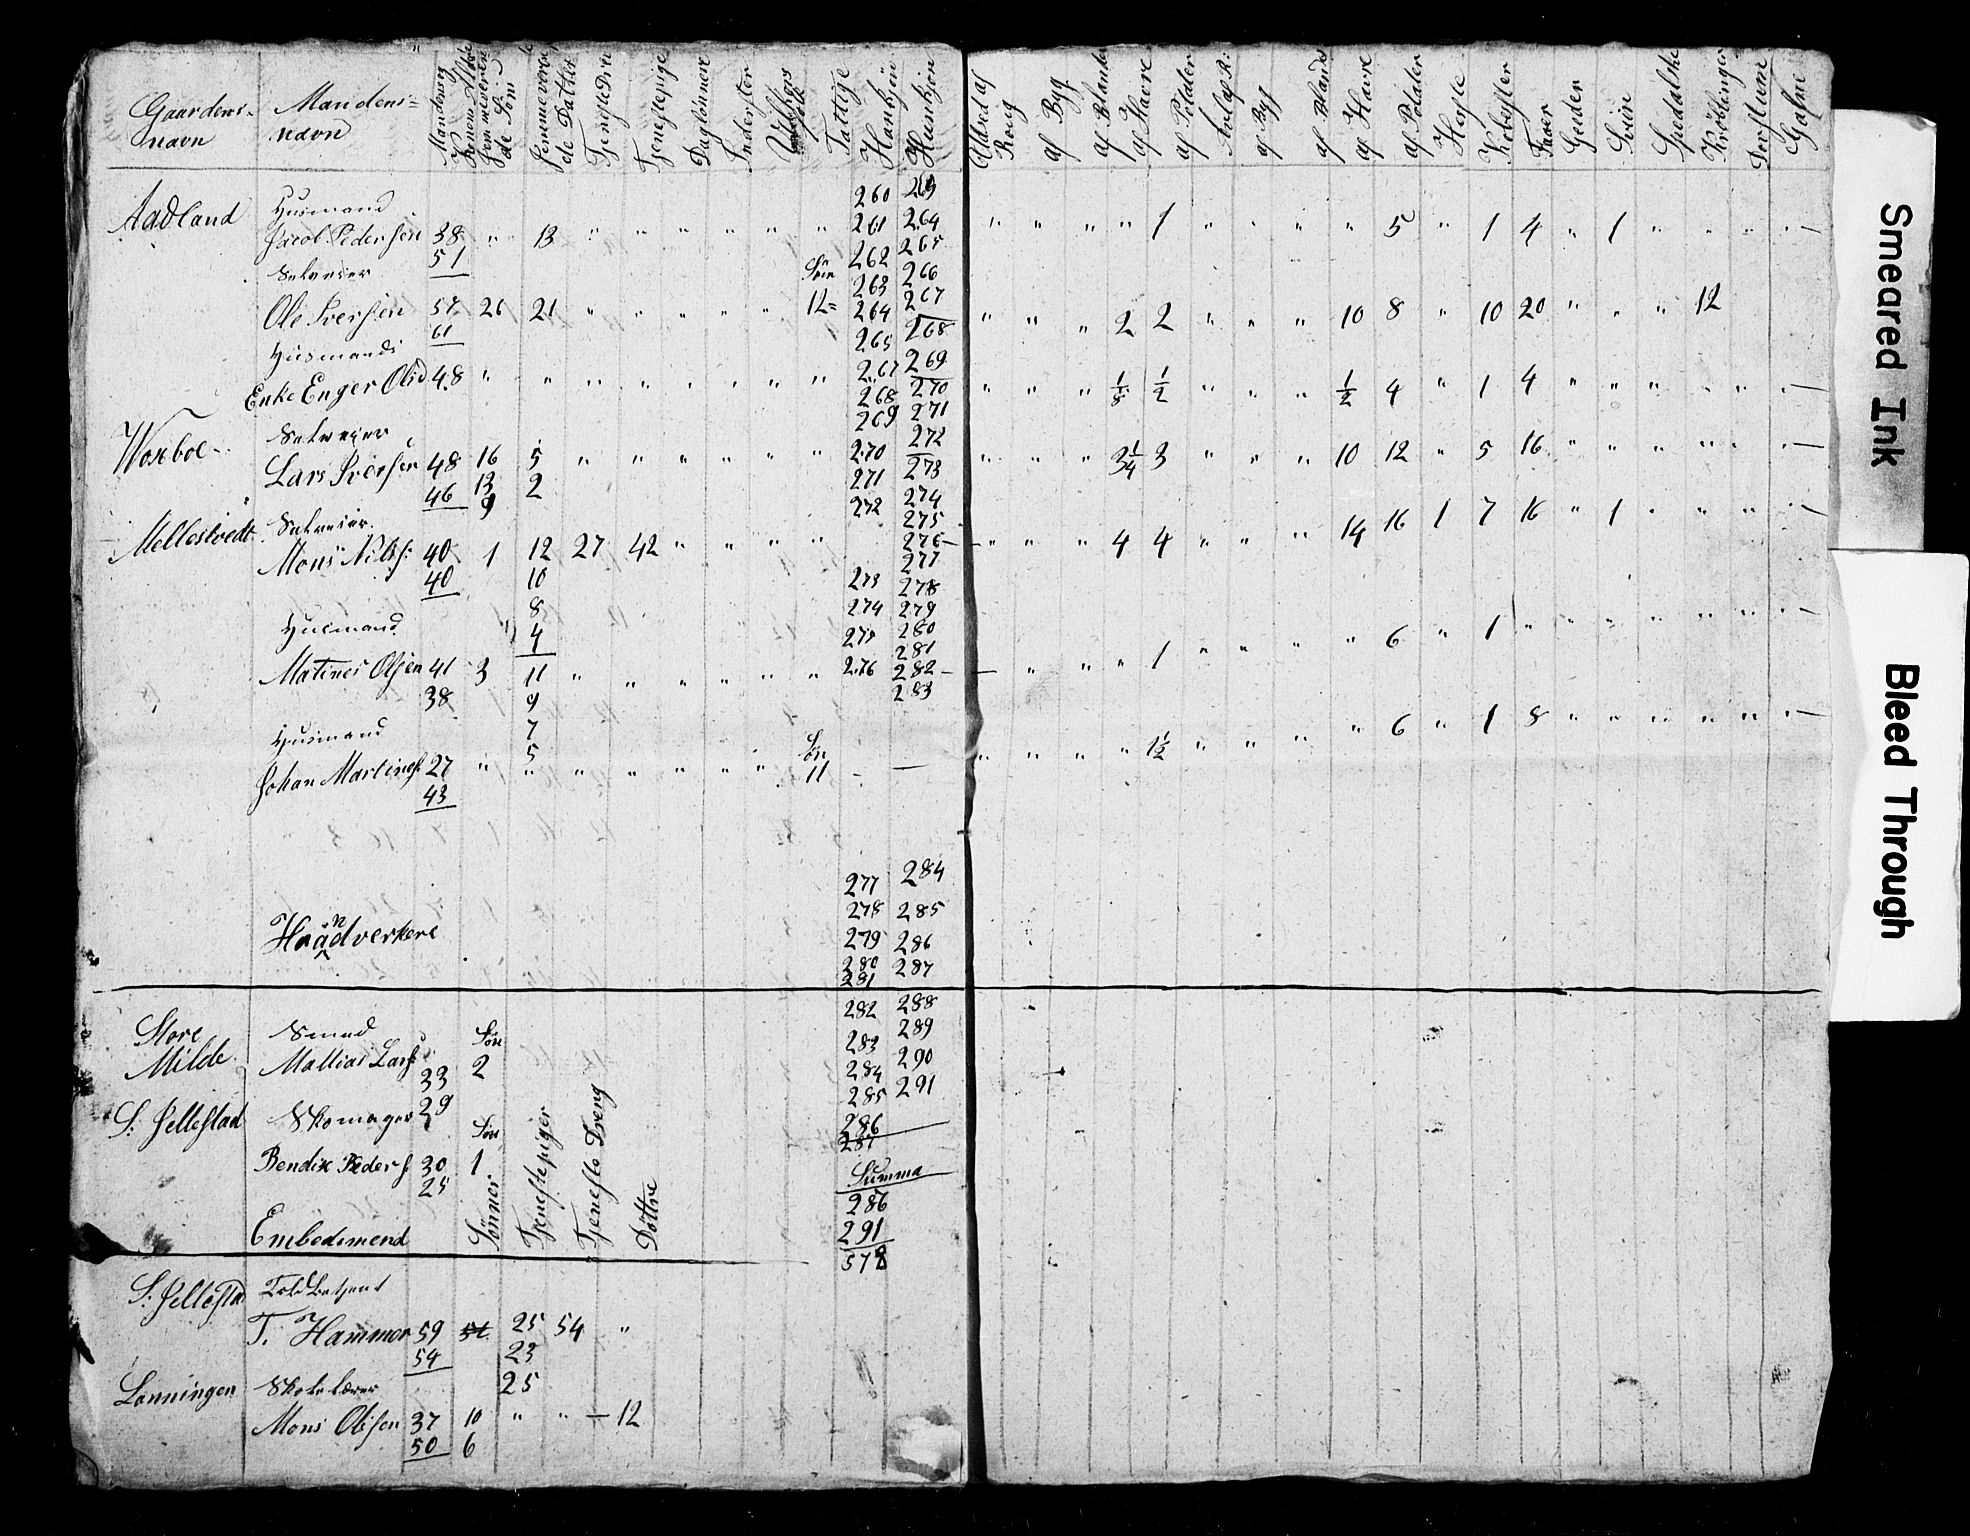 Gaardens navn | Mandens navn | Mandens og Konens Alder | hjemmeværende Søn | hjemmeværende Datter | Tjeneste Dre | Tjenestepige | Daglønnere | Indester | folk | Fattige | Hankjøn | Hunkjøn | Udsæd af Rug | af Byg | af Blande | af Havre | af Poteter | af Byg | af Blande | af Havre | af Poteter | Heste | Kobester | Faaer | Geeder | Sviin | Spedalske | Krøblinger
260 269
Aadland Husmand
Jacob Pedersen 38 " 13 " " " " " " 261 264 " " " " 1 " " " " 5 " 1 4 " 1 " " " "
51 262 265
Selveier Søn 263 266
Ole Iversen 57 26 21 " " " " " 12 264 267 " " " 2 2 " " " 10 8 " 10 20 " " " 12
61 265 268
Husmands
Enke Enger Olsd 48 " " " " " " " " 267 269 " " " 1/8 1/2 " " " 1/2 4 " 1 4 " " " " " "
268 270
269 271
Woxboe Selveier 272
Lars Iversen 48 16 5 " " " " " " 270 273 " " " 3 1/4 3 " " " 10 12 " 5 16 " " " " " "
46 13 2 271 274
9 272 275
Mellestvedt Selveier
Mons Nilss: 40 1 12 27 42 " " " " 276 " " " 4 4 " " " 14 16 1 7 16 " 1 " " " "
40 10 277
273 278
8 274 279
Husmand 4 275 280
281
Matines Olsen 41 3 11 " " " " " " 276 282 " " " 1 " " " " 6 " 1 " " " " " " "
38 9 283
Husmand 7
5 Søn
Johan Martines 27 " " " " " " " 11 " " " " 1 1/2 " " " " 6 " 1 8 " " " " " "
43
277 284
278 285
Haandverkere 279 286
280 287
281
Store Milde Smed Søn 282 288
Mattias Lars 33 2 283 289
29 284 290
S: Jellestad Skomager Søn 285 291
286
287
Bendix Peders 30 1 Summa
25 286
Embedsmend Sønner Tjenestepiger Tjeneste Dreng Døttre 291
578
S: Jellestad Toldbetjent
T. Hammer 59 25 54 "
54 23
Lønningen Skolelærer 25
Mons Olsen 37 10 " " — 12
50 6
Smeared Ink
Bleed Through